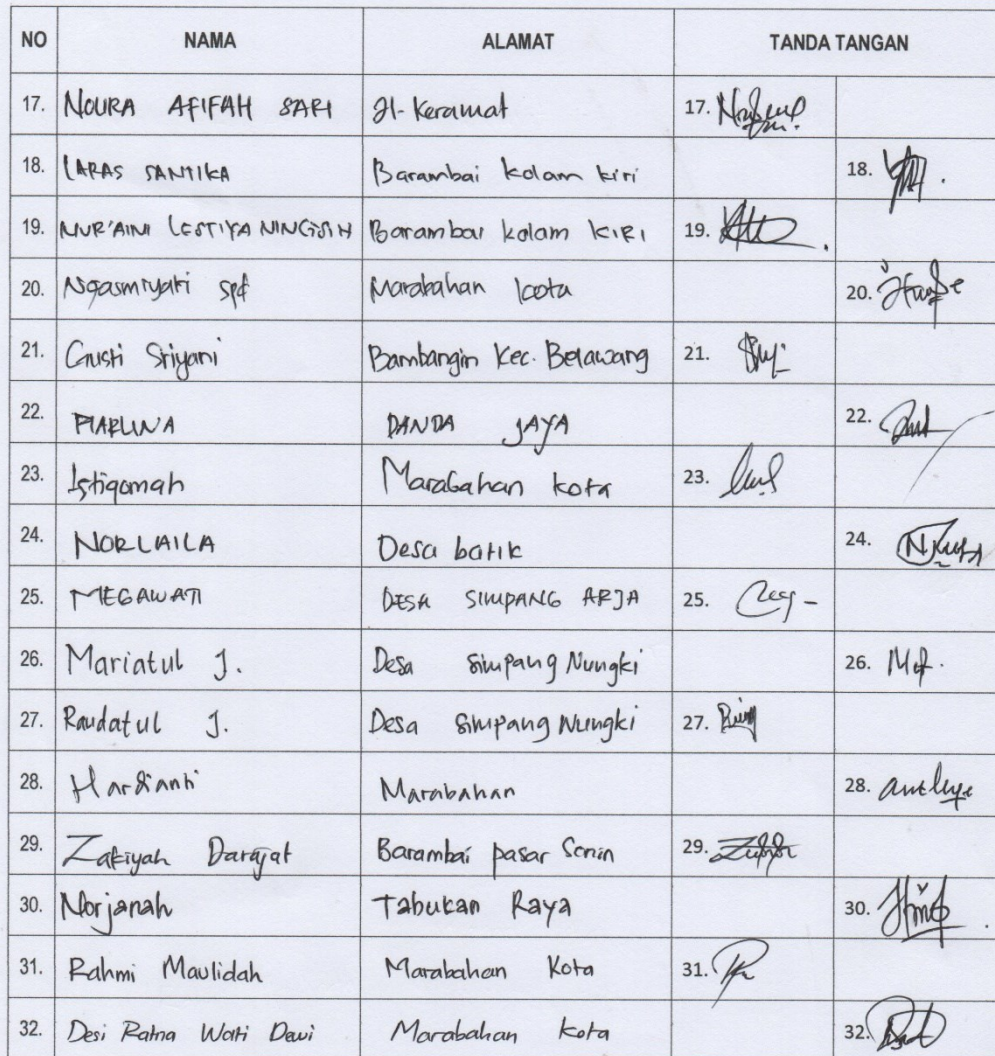 NO NAMA ALAMAT TANDA TANGAN
17. NOURA AFIFAH SARI Jl. Keramat 17.
18. LARAS SANTIKA Barambai kolam kiri 18.
19. NUR'AINI LESTIYA NINGSIH Barambai kolam KIRI 19.
20. Ngasmiyati spd Marabahan kota 20.
21. Gusti Sriyani Bambangin Kec. Belawang 21.
22. MARLINA DANDA JAYA 22.
23. Istiqomah Marabahan kota 23.
24. NORLAILA Desa batik 24.
25. MEGAWATI DESA SIMPANG ARJA 25.
26. Mariatul J. Desa Simpang Nungki 26.
27. Raudatul J. Desa Simpang Nungki 27.
28. Hardianti Marabahan 28.
29. Zakiyah Darajat Barambai pasar Senin 29.
30. Norjanah Tabukan Raya 30.
31. Rahmi Maulidah Marabahan Kota 31.
32. Desi Ratna Wati Dewi Marabahan Kota 32.